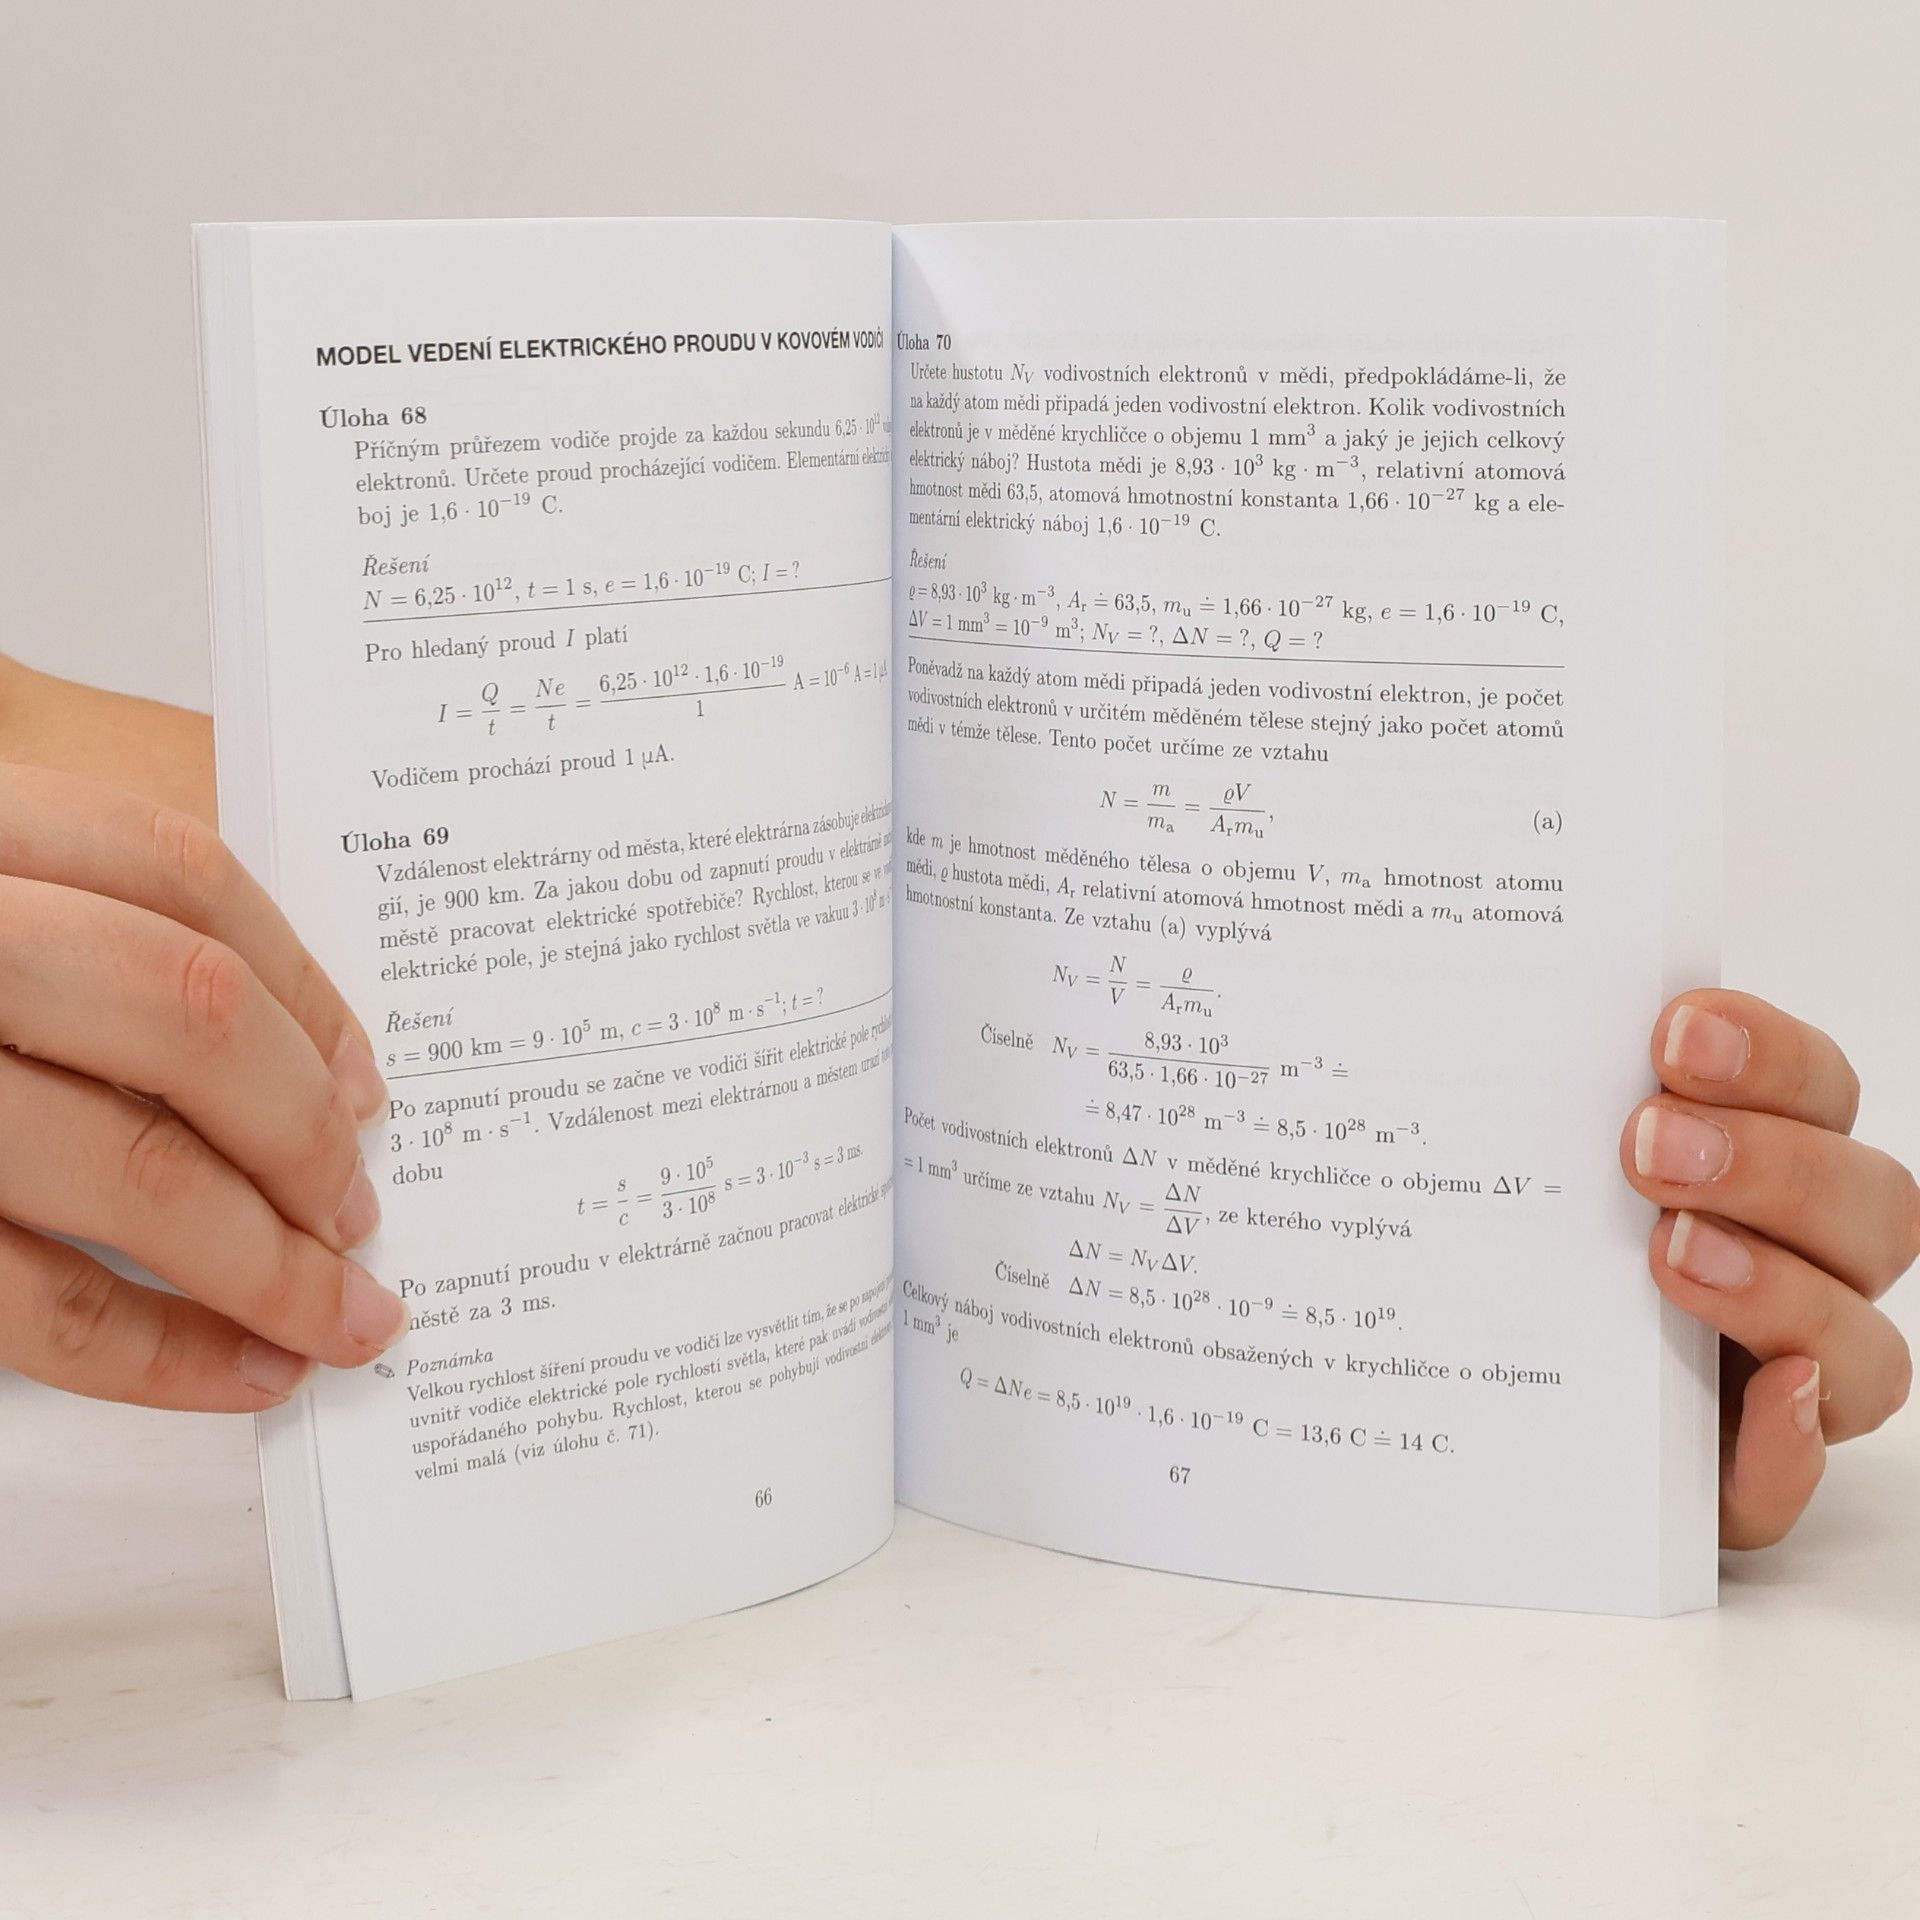 MODEL VEDENÍ ELEKTRICKÉHO PROUDU V KOVOVÉM VODIČI
Úloha 68
Příčným průřezem vodiče projde za každou sekundu 6,25 · 10¹²
elektronů. Určete proud procházející vodičem. Elementární
boj je 1,6 · 10⁻¹⁹ C.
Řešení
N = 6,25 · 10¹², t = 1 s, e = 1,6 · 10⁻¹⁹ C; I = ?
Pro hledaný proud I platí
I = Q/t = Ne/t = 6,25 · 10¹² · 1,6 · 10⁻¹⁹/1 A = 10⁻⁶ A = 1 μA
Vodičem prochází proud 1 μA.
Úloha 69
Vzdálenost elektrárny od města, které elektrárna zásobuje
gií, je 900 km. Za jakou dobu od zapnutí proudu v elektrárně
městě pracovat elektrické spotřebiče? Rychlost, kterou se ve
elektrické pole, je stejná jako rychlost světla ve vakuu 3 · 10⁸
Řešení
s = 900 km = 9 · 10⁵ m, c = 3 · 10⁸ m · s⁻¹; t = ?
Po zapnutí proudu se začne ve vodiči šířit elektrické pole
3 · 10⁸ m · s⁻¹. Vzdálenost mezi elektrárnou a městem urazí
dobu
t = s/c = 9 · 10⁵/3 · 10⁸ s = 3 · 10⁻³ s = 3 ms.
Po zapnutí proudu v elektrárně začnou pracovat elektrické
městě za 3 ms.
Poznámka
Velkou rychlost šíření proudu ve vodiči lze vysvětlit tím, že se po zapojení
uvnitř vodiče elektrické pole rychlostí světla, které pak uvádí vodivostní
uspořádaného pohybu. Rychlost, kterou se pohybují vodivostní
velmi malá (viz úlohu č. 71).
66
Úloha 70
Určete hustotu N_V vodivostních elektronů v mědi, předpokládáme-li, že
na každý atom mědi připadá jeden vodivostní elektron. Kolik vodivostních
elektronů je v měděné krychličce o objemu 1 mm³ a jaký je jejich celkový
elektrický náboj? Hustota mědi je 8,93 · 10³ kg · m⁻³, relativní atomová
hmotnost mědi 63,5, atomová hmotnostní konstanta 1,66 · 10⁻²⁷ kg a ele-
mentární elektrický náboj 1,6 · 10⁻¹⁹ C.
Řešení
ϱ = 8,93 · 10³ kg · m⁻³, A_r ≐ 63,5, m_u ≐ 1,66 · 10⁻²⁷ kg, e = 1,6 · 10⁻¹⁹ C,
ΔV = 1 mm³ = 10⁻⁹ m³; N_V = ?, ΔN = ?, Q = ?
Poněvadž na každý atom mědi připadá jeden vodivostní elektron, je počet
vodivostních elektronů v určitém měděném tělese stejný jako počet atomů
mědi v témže tělese. Tento počet určíme ze vztahu
N = m/m_a = ϱV/A_r m_u, (a)
kde m je hmotnost měděného tělesa o objemu V, m_a hmotnost atomu
mědi, ϱ hustota mědi, A_r relativní atomová hmotnost mědi a m_u atomová
hmotnostní konstanta. Ze vztahu (a) vyplývá
N_V = N/V = ϱ/A_r m_u.
Číselně N_V = 8,93 · 10³/63,5 · 1,66 · 10⁻²⁷ m⁻³ ≐
≐ 8,47 · 10²⁸ m⁻³ ≐ 8,5 · 10²⁸ m⁻³.
Počet vodivostních elektronů ΔN v měděné krychličce o objemu ΔV =
= 1 mm³ určíme ze vztahu N_V = ΔN/ΔV, ze kterého vyplývá
ΔN = N_V ΔV.
Číselně ΔN = 8,5 · 10²⁸ · 10⁻⁹ ≐ 8,5 · 10¹⁹.
Celkový náboj vodivostních elektronů obsažených v krychličce o objemu
1 mm³ je
Q = ΔNe = 8,5 · 10¹⁹ · 1,6 · 10⁻¹⁹ C = 13,6 C ≐ 14 C.
67